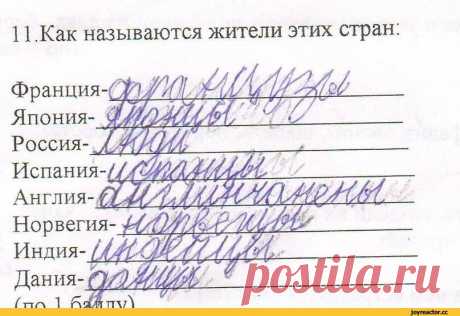 11.Как называются жители этих стран:
Франция-французы
Япония-японцы
Россия-люди
Испания-испанцы
Англия-англинчанены
Норвегия-норвегцы
Индия-индейцы
Дания-данцы
(по 1 баллу)
postila.ru
joyreactor.cc